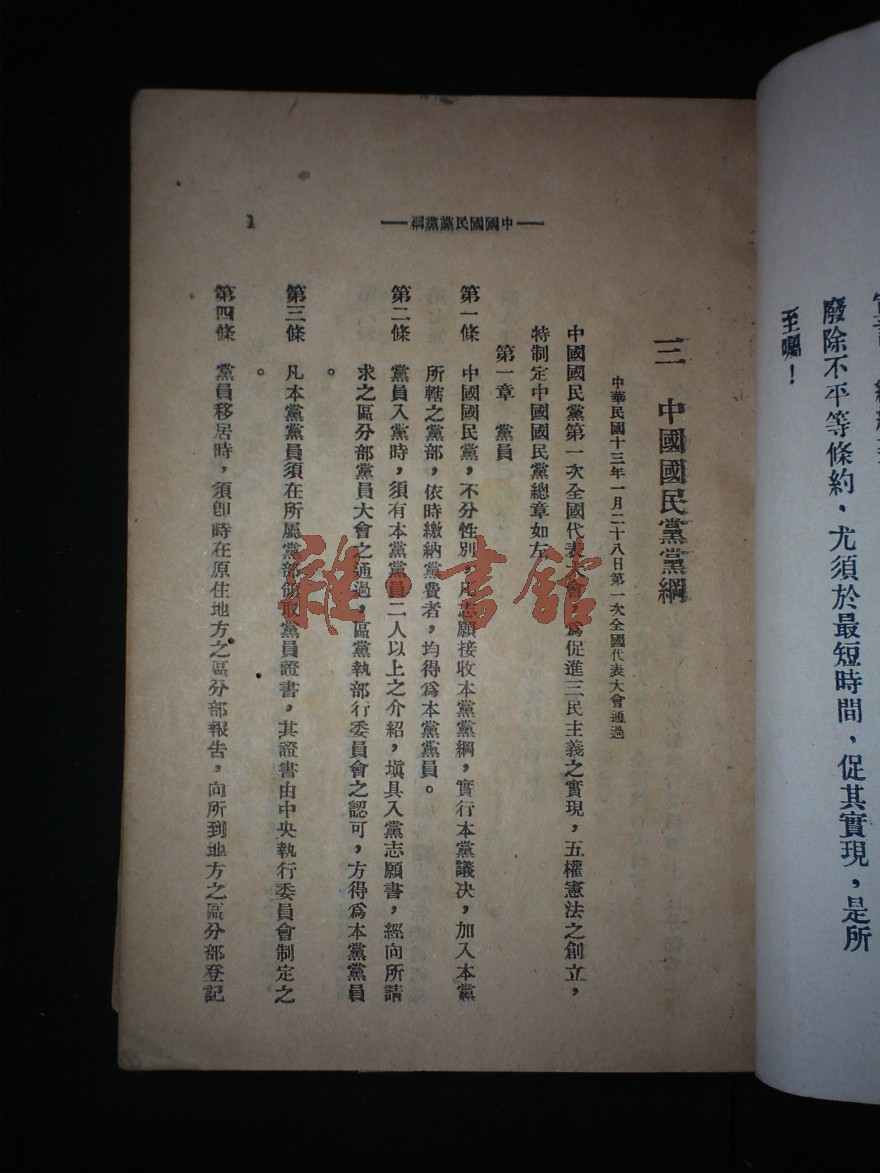 廢除不平等條約，尤須於最短時間，促其實現，是所
至囑！
中國國民黨黨綱
1
三　中國國民黨黨綱
中華民國十三年一月二十八日第一次全國代表大會通過
中國國民黨第一次全國代表大會，爲促進三民主義之實現，五權憲法之創立，
特制定中國國民黨總章如左
第一章　黨員
第一條　中國國民黨，不分性別，凡志願接收本黨黨綱，實行本黨議决，加入本黨
所轄之黨部，依時繳納黨費者，均得爲本黨黨員。
第二條　黨員入黨時，須有本黨黨員二人以上之介紹，塡具入黨志願書，經向所請
求之區分部黨員大會之通過，區黨執部行委員會之認可，方得爲本黨黨員
。
第三條　凡本黨黨員須在所屬黨部領取黨員證書，其證書由中央執行委員會制定之
。
第四條　黨員移居時，須卽時在原住地方之區分部報告，向所到地方之區分部登記
雜·書館